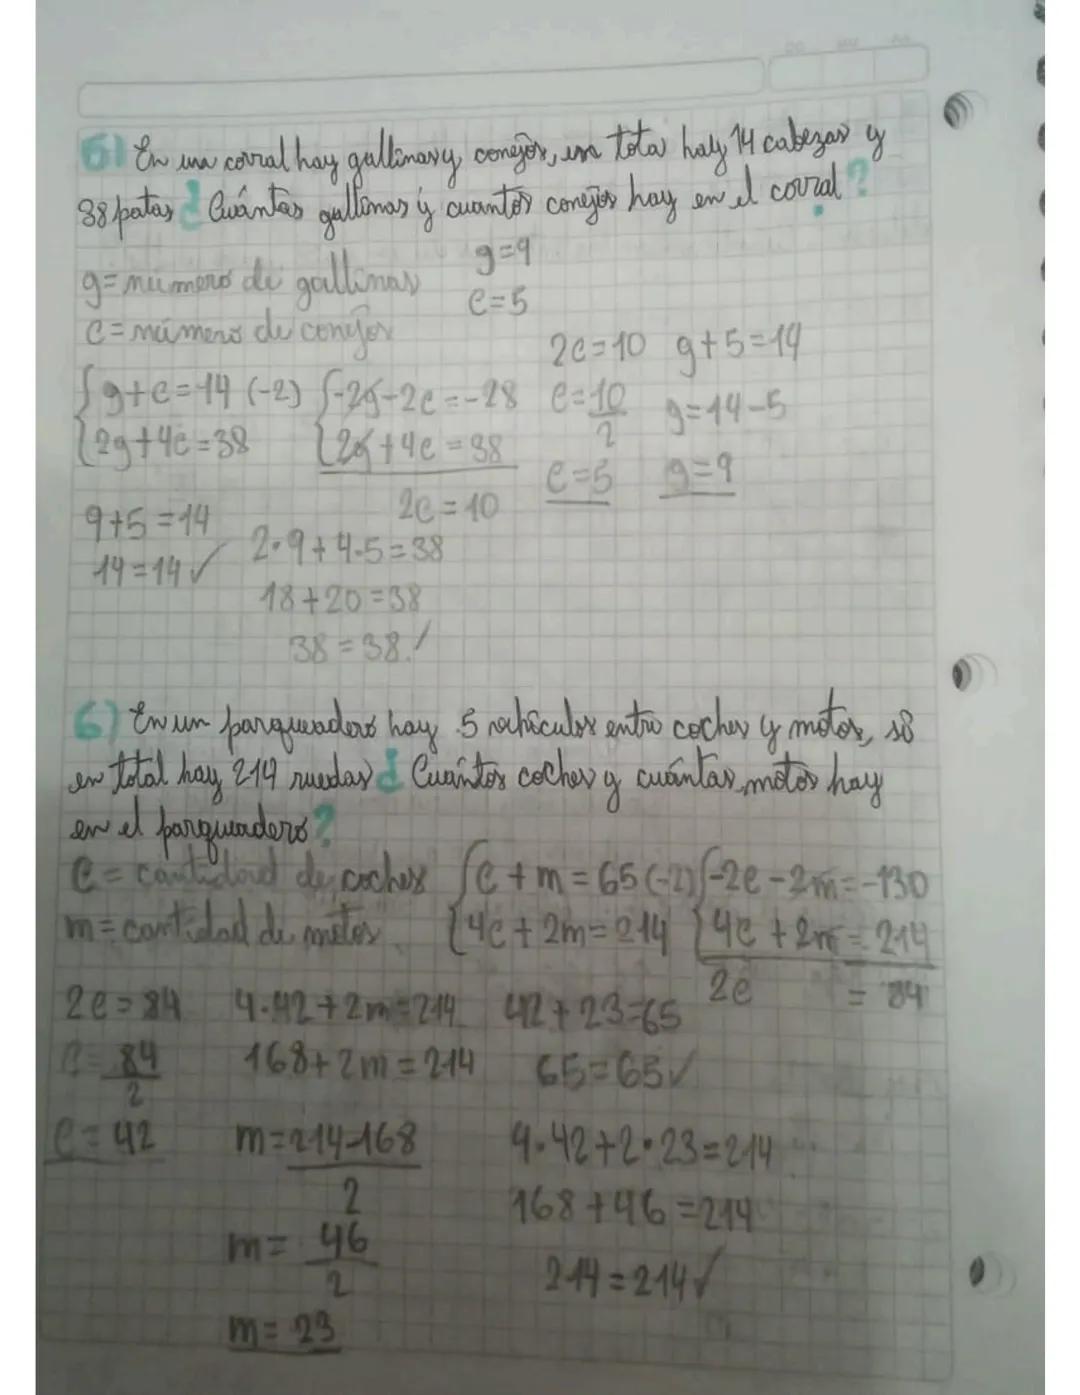 5) En una corral hay gallinas y conejos, en tota hay 14 cabezas y
38 patas ¿Cuántas gallinas y cuantos conejos hay en el corral?
g = número de gallinas
g=9
c = número de conejos
c=5
2c=10 g+5=14
{g+c=14 (-2) {-2g-2c=-28 c=10/2 g=14-5
{2g+4c=38 {2g+4c=38 c=5 g=9
2c=10
9+5=14
14=14✓
2·9+4·5=38
18+20=38
38=38✓
6) En un parqueadero hay 5 vehículos entre coches y motos, si
en total hay 214 ruedas ¿Cuántos coches y cuántas motos hay
en el parqueadero?
c = cantidad de coches {c+m=65 (-2) {-2c-2m=-130
m = cantidad de motos {4c+2m=214 {4c+2m=214
2c = 84
2c=84 4·42+2m=214 42+23=65
c=84/2 168+2m=214 65=65✓
c=42 m=214-168/2 4·42+2·23=214
m=46/2 168+46=214
m=23 214=214✓